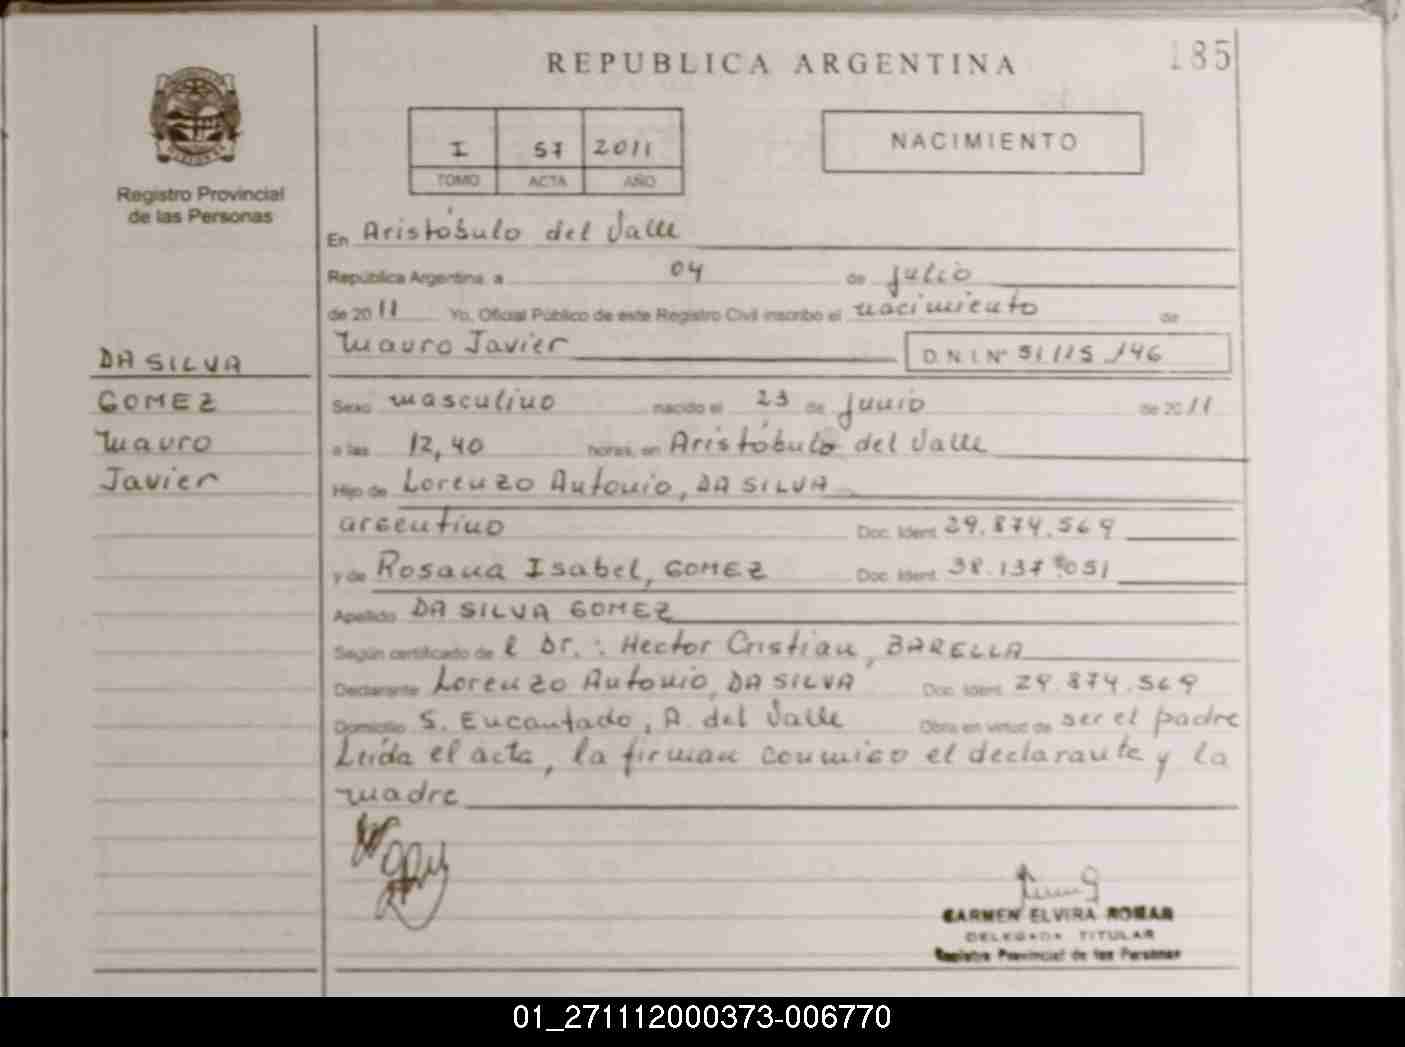 185
REPUBLICA ARGENTINA
I 57 2011
TOMO ACTA AÑO
NACIMIENTO
Registro Provincial
de las Personas
En Aristóbulo del Valle
República Argentina a 04 de julio
de 2011 Yo, Oficial Público de este Registro Civil inscribo el nacimiento de
Mauro Javier D.N.I. Nº 51.115.146
DA SILVA
GOMEZ
Mauro
Javier
Sexo masculino nacido el 23 de junio de 2011
a las 12,40 horas, en Aristóbulo del Valle
Hijo de Lorenzo Antonio, DA SILVA
argentino Doc. Ident. 29.874.569
y de Rosana Isabel, GOMEZ Doc. Ident. 38.137.051
Apellido DA SILVA GOMEZ
Según certificado de l Dr.: Hector Cristian, BARELLA
Declarante Lorenzo Antonio, DA SILVA Doc. Ident. 29.874.569
Domicilio S. Encantado, A. del Valle Obra en virtud de ser el padre
Leída el acta, la firman conmigo el declarante y la
madre
CARMEN ELVIRA ROMAN
DELEGADA TITULAR
Registro Provincial de las Personas
01_271112000373-006770